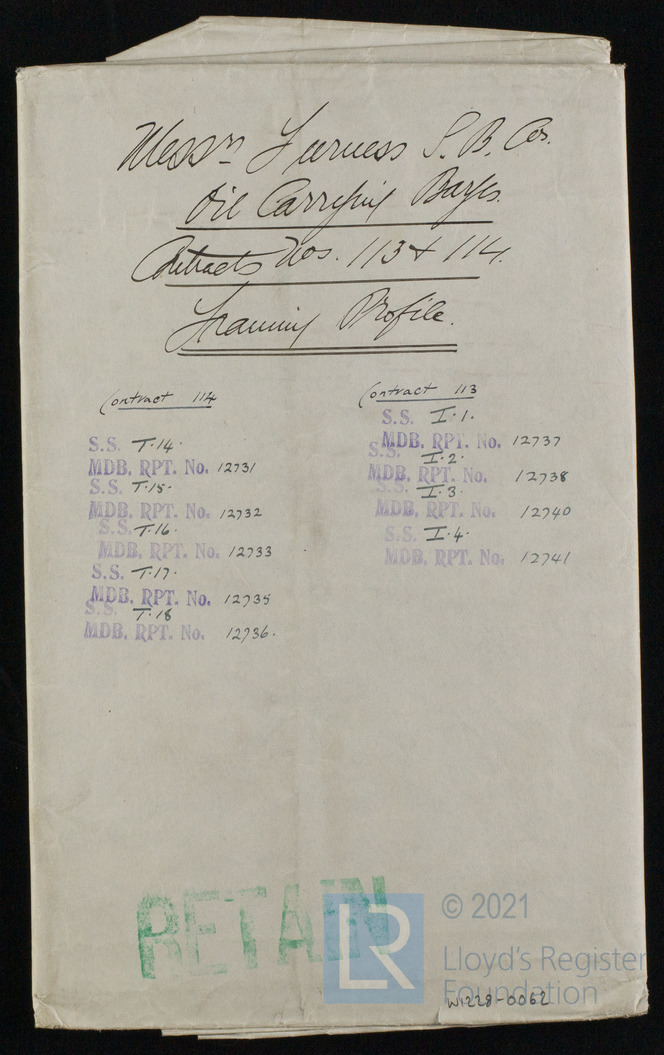 Messrs Furness S. B. Co.
Oil Carrying Barges.
Contracts Nos. 113 & 114.
Framing Profile.
Contract 114
S.S. T.14.
MDB. RPT. No. 12731
S.S. T.15.
MDB. RPT. No. 12732
S.S. T.16.
MDB. RPT. No. 12733
S.S. T.17.
MDB. RPT. No. 12735
S.S. T.18
MDB. RPT. No. 12736.
Contract 113
S.S. I.1.
MDB. RPT. No. 12737
S.S. I.2.
MDB. RPT. No. 12738
S.S. I.3.
MDB. RPT. No. 12740
S.S. I.4.
MDB. RPT. No. 12741
RETAIN
LR
© 2021
Lloyd's Register
Foundation
W1228-0062